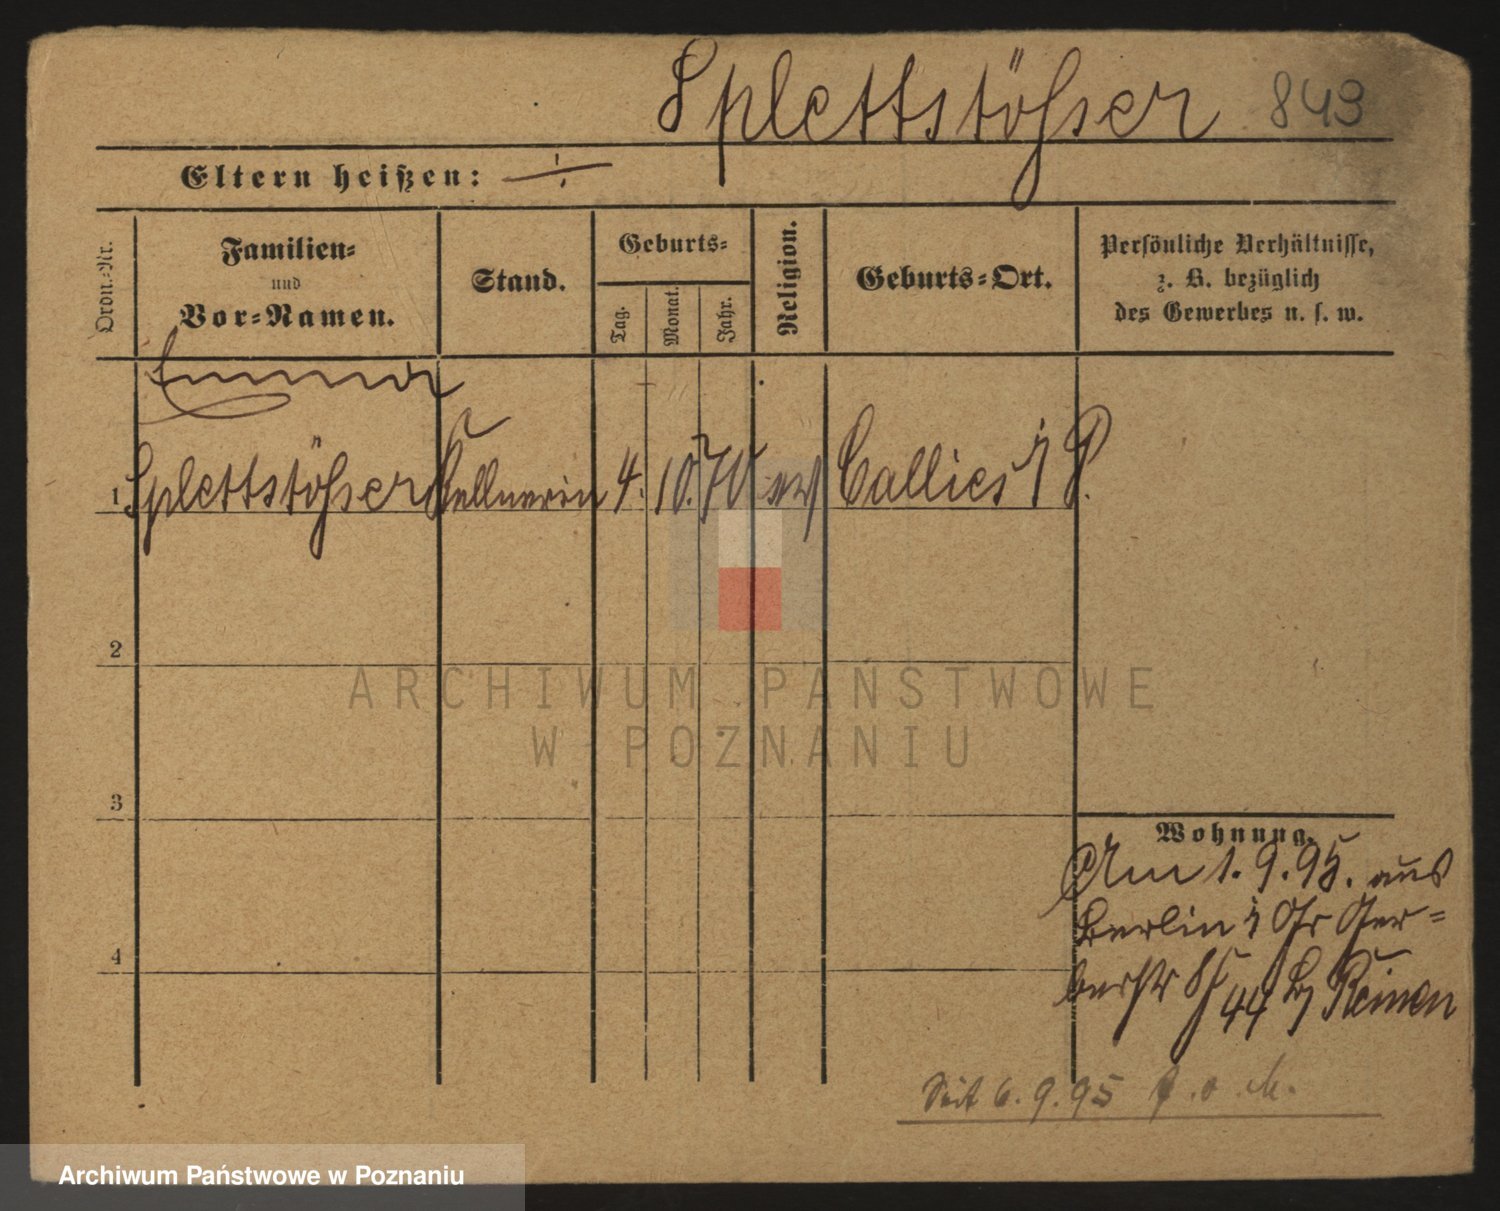 Splettstößer 843
Eltern heißen: ÷
Ordn.-Nr.
Familien-
und
Vor-Namen.
Stand.
Geburts-
Tag.
Monat.
Jahr.
Religion.
Geburts-Ort.
Persönliche Verhältnisse,
z. B. bezüglich
des Gewerbes u. s. w.
Emma
1 Splettstößer Kellnerin 4. 10. 70 ev Callies i P.
2
3
4
Wohnung.
Am 1. 9. 95. aus
Berlin i Gr Ger-
berstr
44 b Reimen
Seit 6. 9. 95
ARCHIWUM PAŃSTWOWE
W POZNANIU
Archiwum Państwowe w Poznaniu